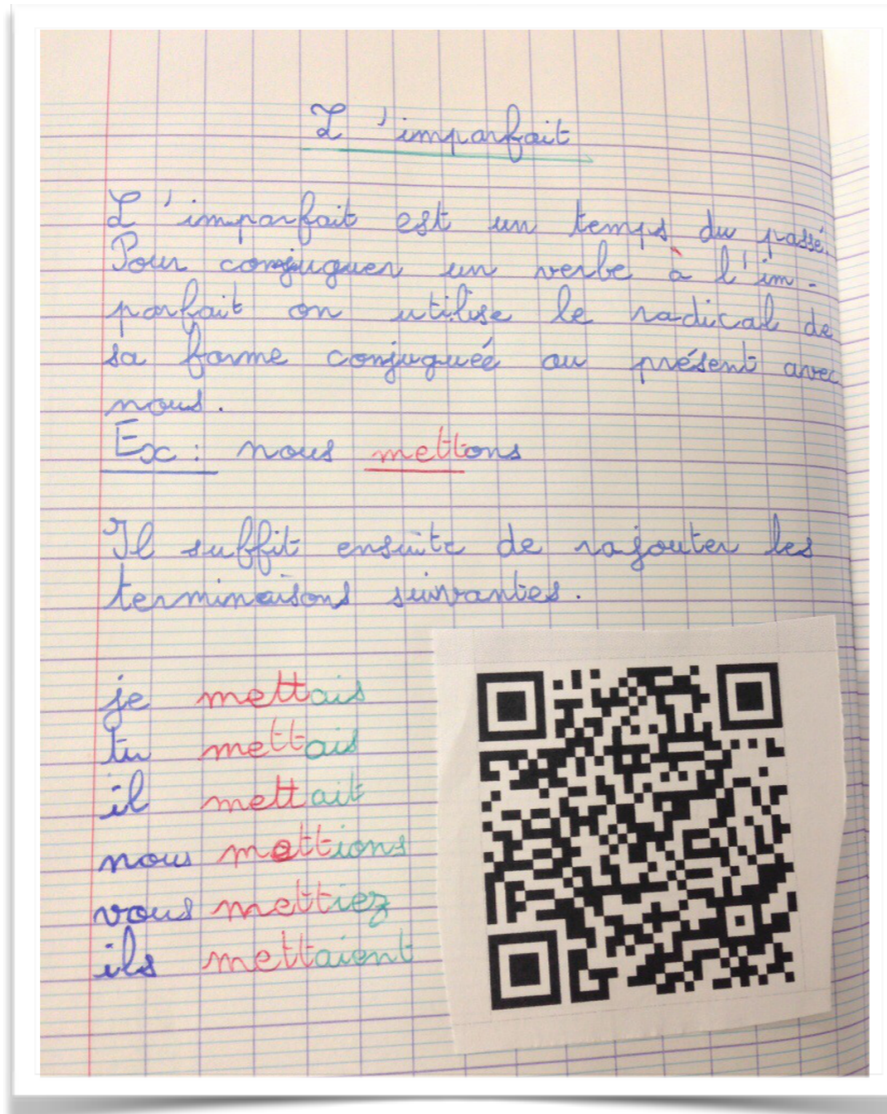 L'imparfait
L'imparfait est un temps du passé.
Pour conjuguer un verbe à l'im-
parfait on utilise le radical de
sa forme conjuguée au présent avec
nous.
Ex : nous mettons
Il suffit ensuite de rajouter les
terminaisons suivantes.
je mettais
tu mettais
il mettait
nous mettions
vous mettiez
ils mettaient